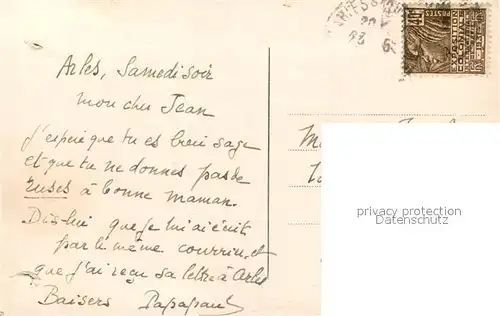 Arles, Samedi soir
mon cher Jean
J'espère que tu es bien sage
et que tu ne donnes pas de
ruses à bonne maman.
Dis-lui que je lui ai écrit
par le même courrier, et
que j'ai reçu sa lettre à Arles
Baisers Papapaul
20
POSTES
40c
EXPOSITION
COLONIALE
INTERNATIONALE
privacy protection
Datenschutz